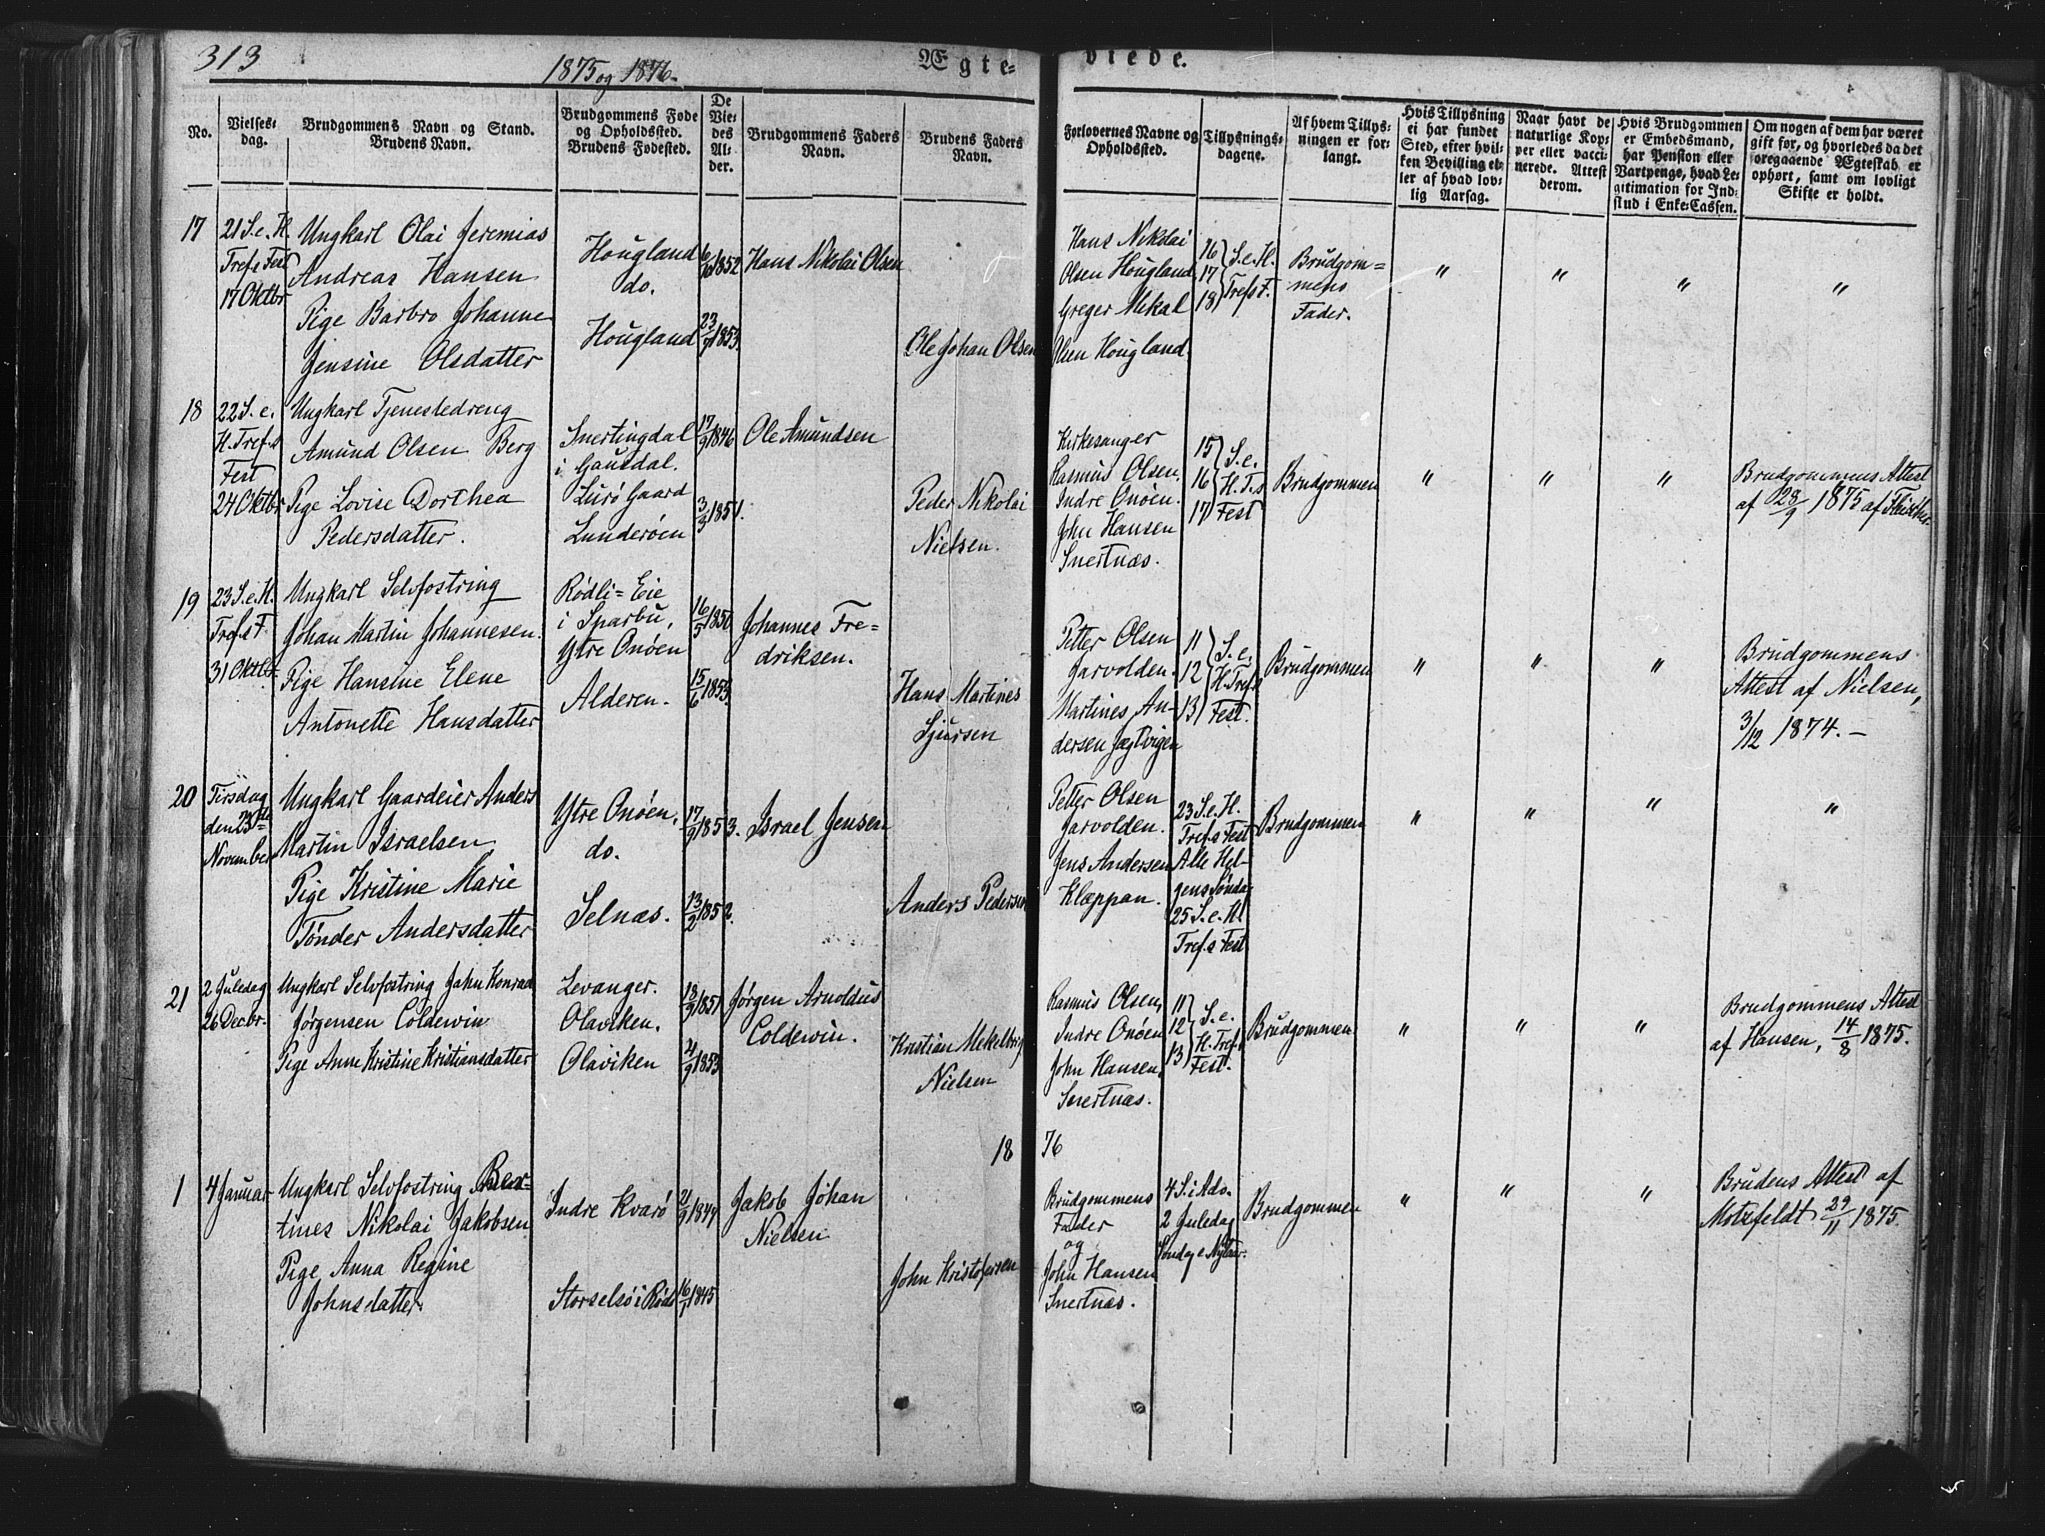 313
1875 og 1876.
Ægte=
viede.
No.
Vielses=
dag.
Brudgommens Navn og Stand.
Brudens Navn.
Brudgommens Føde
og Opholdssted.
Brudens Fødested.
De
Vie=
des
Al=
der.
Brudgommens Faders
Navn.
Brudens Faders
Navn.
Forlovernes Navne og
Opholdssted.
Tillysnings=
dagene.
Af hvem Tillys=
ningen er for=
langt.
Hvis Tillysning
ei har fundet
Sted, efter hvil=
ken Bevilling el=
ler af hvad lov=
lig Aarsag.
Naar havt de
naturlige Kop=
per eller vacci=
nerede. Attest
derom.
Hvis Brudgommen
er Embedsmand,
har Pension eller
Vartpenge, hvad Le=
gitimation for Ind=
skud i Enke-Cassen.
Om nogen af dem har været
gift før, og hvorledes da det
foregaaende Ægteskab er
ophørt, samt om lovligt
Skifte er holdt.
17
21 S. e. H.
Tref.s Fest
17 Oktbr
Ungkarl Olai Jeremias
Andreas Hansen
Pige Barbro Johanne
Jensine Olsdatter
Hougland
do.
Hougland
1852
23/7 1853.
Hans Nikolai Olsen
Ole Johan Olsen
Hans Nikolai
Olsen Hougland
Greger Mekal
Olsen Hougland.
16
17
18
S. e. H.
Trefs F.
Brudgom=
mens
Fader.
"
"
"
"
18
22 S. e.
H. Tref.s
Fest
24 Oktbr
Ungkarl Tjenestedreng
Amund Olsen Berg
Pige Lovise Dorthea
Pedersdatter.
Snertingdal
i Gausdal.
Lurö Gaard
Lunderöen
17/9 1846
3/3 1851.
Ole Amundsen
Peder Nikolai
Nielsen.
Kirkesanger
Rasmus Olsen,
Indre Onöen.
John Hansen
Snertnæs.
15
16
17
S. e.
H. T.s
Fest
Brudgommen
"
"
"
Brudgommens Attest
af 28/9 1875 af Fleischer.
19
23 S. e. H.
Tref.s F.
31 Oktbr.
Ungkarl Selvfostring
Johan Martin Johannesen.
Pige Hansine Elene
Antonette Hansdatter
Rödli=Eie
i Sparbu,
Ytre Onöen
Alderen.
16/5 1850
15/6 1853.
Johannes Fre=
driksen.
Hans Martines
Sjursen
Petter Olsen
Jarvolden.
Martines An-
dersen Jægtvigen
11
12
13
S. e.
H. Tref.s
Fest.
Brudgommen
"
"
"
Brudgommens
Attest af Nielsen,
3/12 1874. –
20
Tirsdag
den 23de
November
Ungkarl Gaardeier Anders
Martin Israelsen
Pige Kristine Marie
Tönder Andersdatter
Ytre Onöen.
do.
Selnæs.
17/9 1853.
13/2 1852.
Israel Jensen
Anders Pedersen
Petter Olsen
Jarvolden.
Jens Andersen
Klæppan.
23 S. e. H.
Tref.s Fest
Alle Hel-
gens Söndag
25 S. e. H.
Tref.s Fest
Brudgommen
"
"
"
"
21
2 Juledag
26 Decbr.
Ungkarl Selvfostring John Konrad
Jörgensen Coldewin
Pige Anne Kristine Kristiansdatter
Levanger.
Olaviken.
Olaviken
18/9 1851
4/9 1853
Jörgen Arnoldus
Coldewin.
Kristian Mekelborg
Nielsen
Rasmus Olsen,
Indre Onöen
John Hansen,
Snertnæs.
11
12
13
S. e.
H. Tref.s
Fest.
Brudgommen
"
"
"
Brudgommens Attest
af Hansen, 14/8 1875.
18 76
1
4 Januar
Ungkarl Selvfostring Ber-
tines Nikolai Jakobsen
Pige Anna Regine
Johnsdatter
Indre Kvarö
Storselsö i Rödö
1847
1845
Jakob Johan
Nielsen
John Kristofersen
Brudgommens
Fader
og
John Hansen
Snertnæs.
4 S. i Adv.
2 Juledag
Söndag e. Nytaar.
Brudgommen
"
"
"
Brudens Attest af
Motzfeldt 29/11 1875.